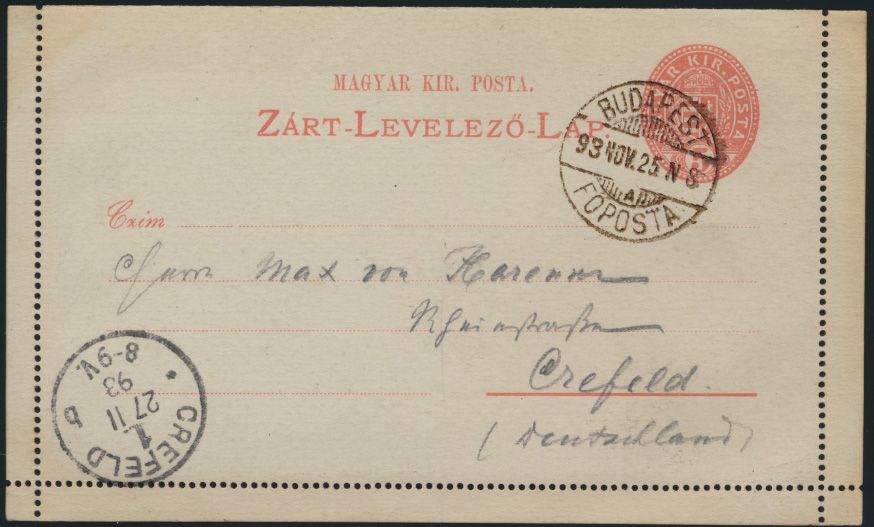 MAGYAR KIR. POSTA.
ZÁRT-LEVELEZŐ-LAP.
KIR. POSTA
5
BUDAPEST
93 NOV. 25 N 8
A
FŐPOSTA
Czim
Herrn Max von
Rheinstraße
Crefeld.
(Deutschland)
CREFELD b
1
27 11
93
8-9V.